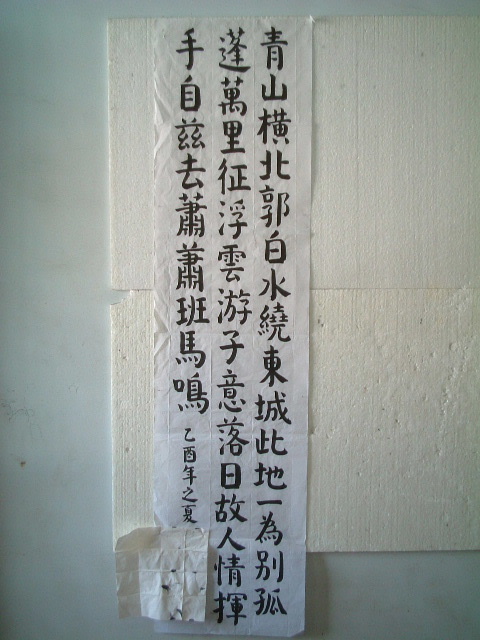 青山橫北郭白水繞東城此地一為別孤
蓬萬里征浮雲游子意落日故人情揮
手自茲去蕭蕭班馬鳴
乙酉年之夏